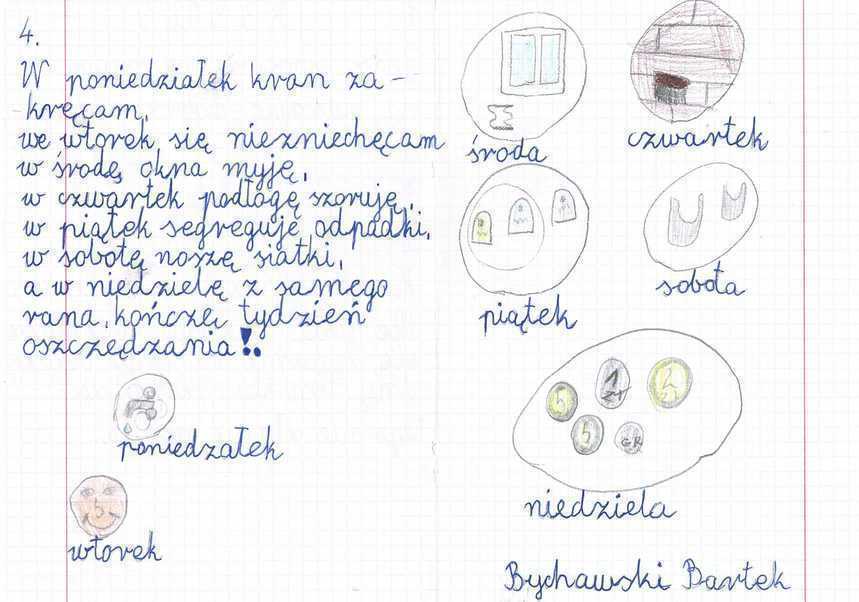 4.
W poniedziałek kran za-
kręcam,
we wtorek się niezniechęcam
w środę okna myję,
w czwartek podłogę szoruję,
w piątek segreguję odpadki,
w sobotę noszę siatki,
a w niedzielę z samego
rana, kończę tydzień
oszczędzania!
poniedzałek
wtorek
środa
czwartek
piątek
sobota
5
1
zł
2
zł
5
GR
niedziela
Bychawski Bartek